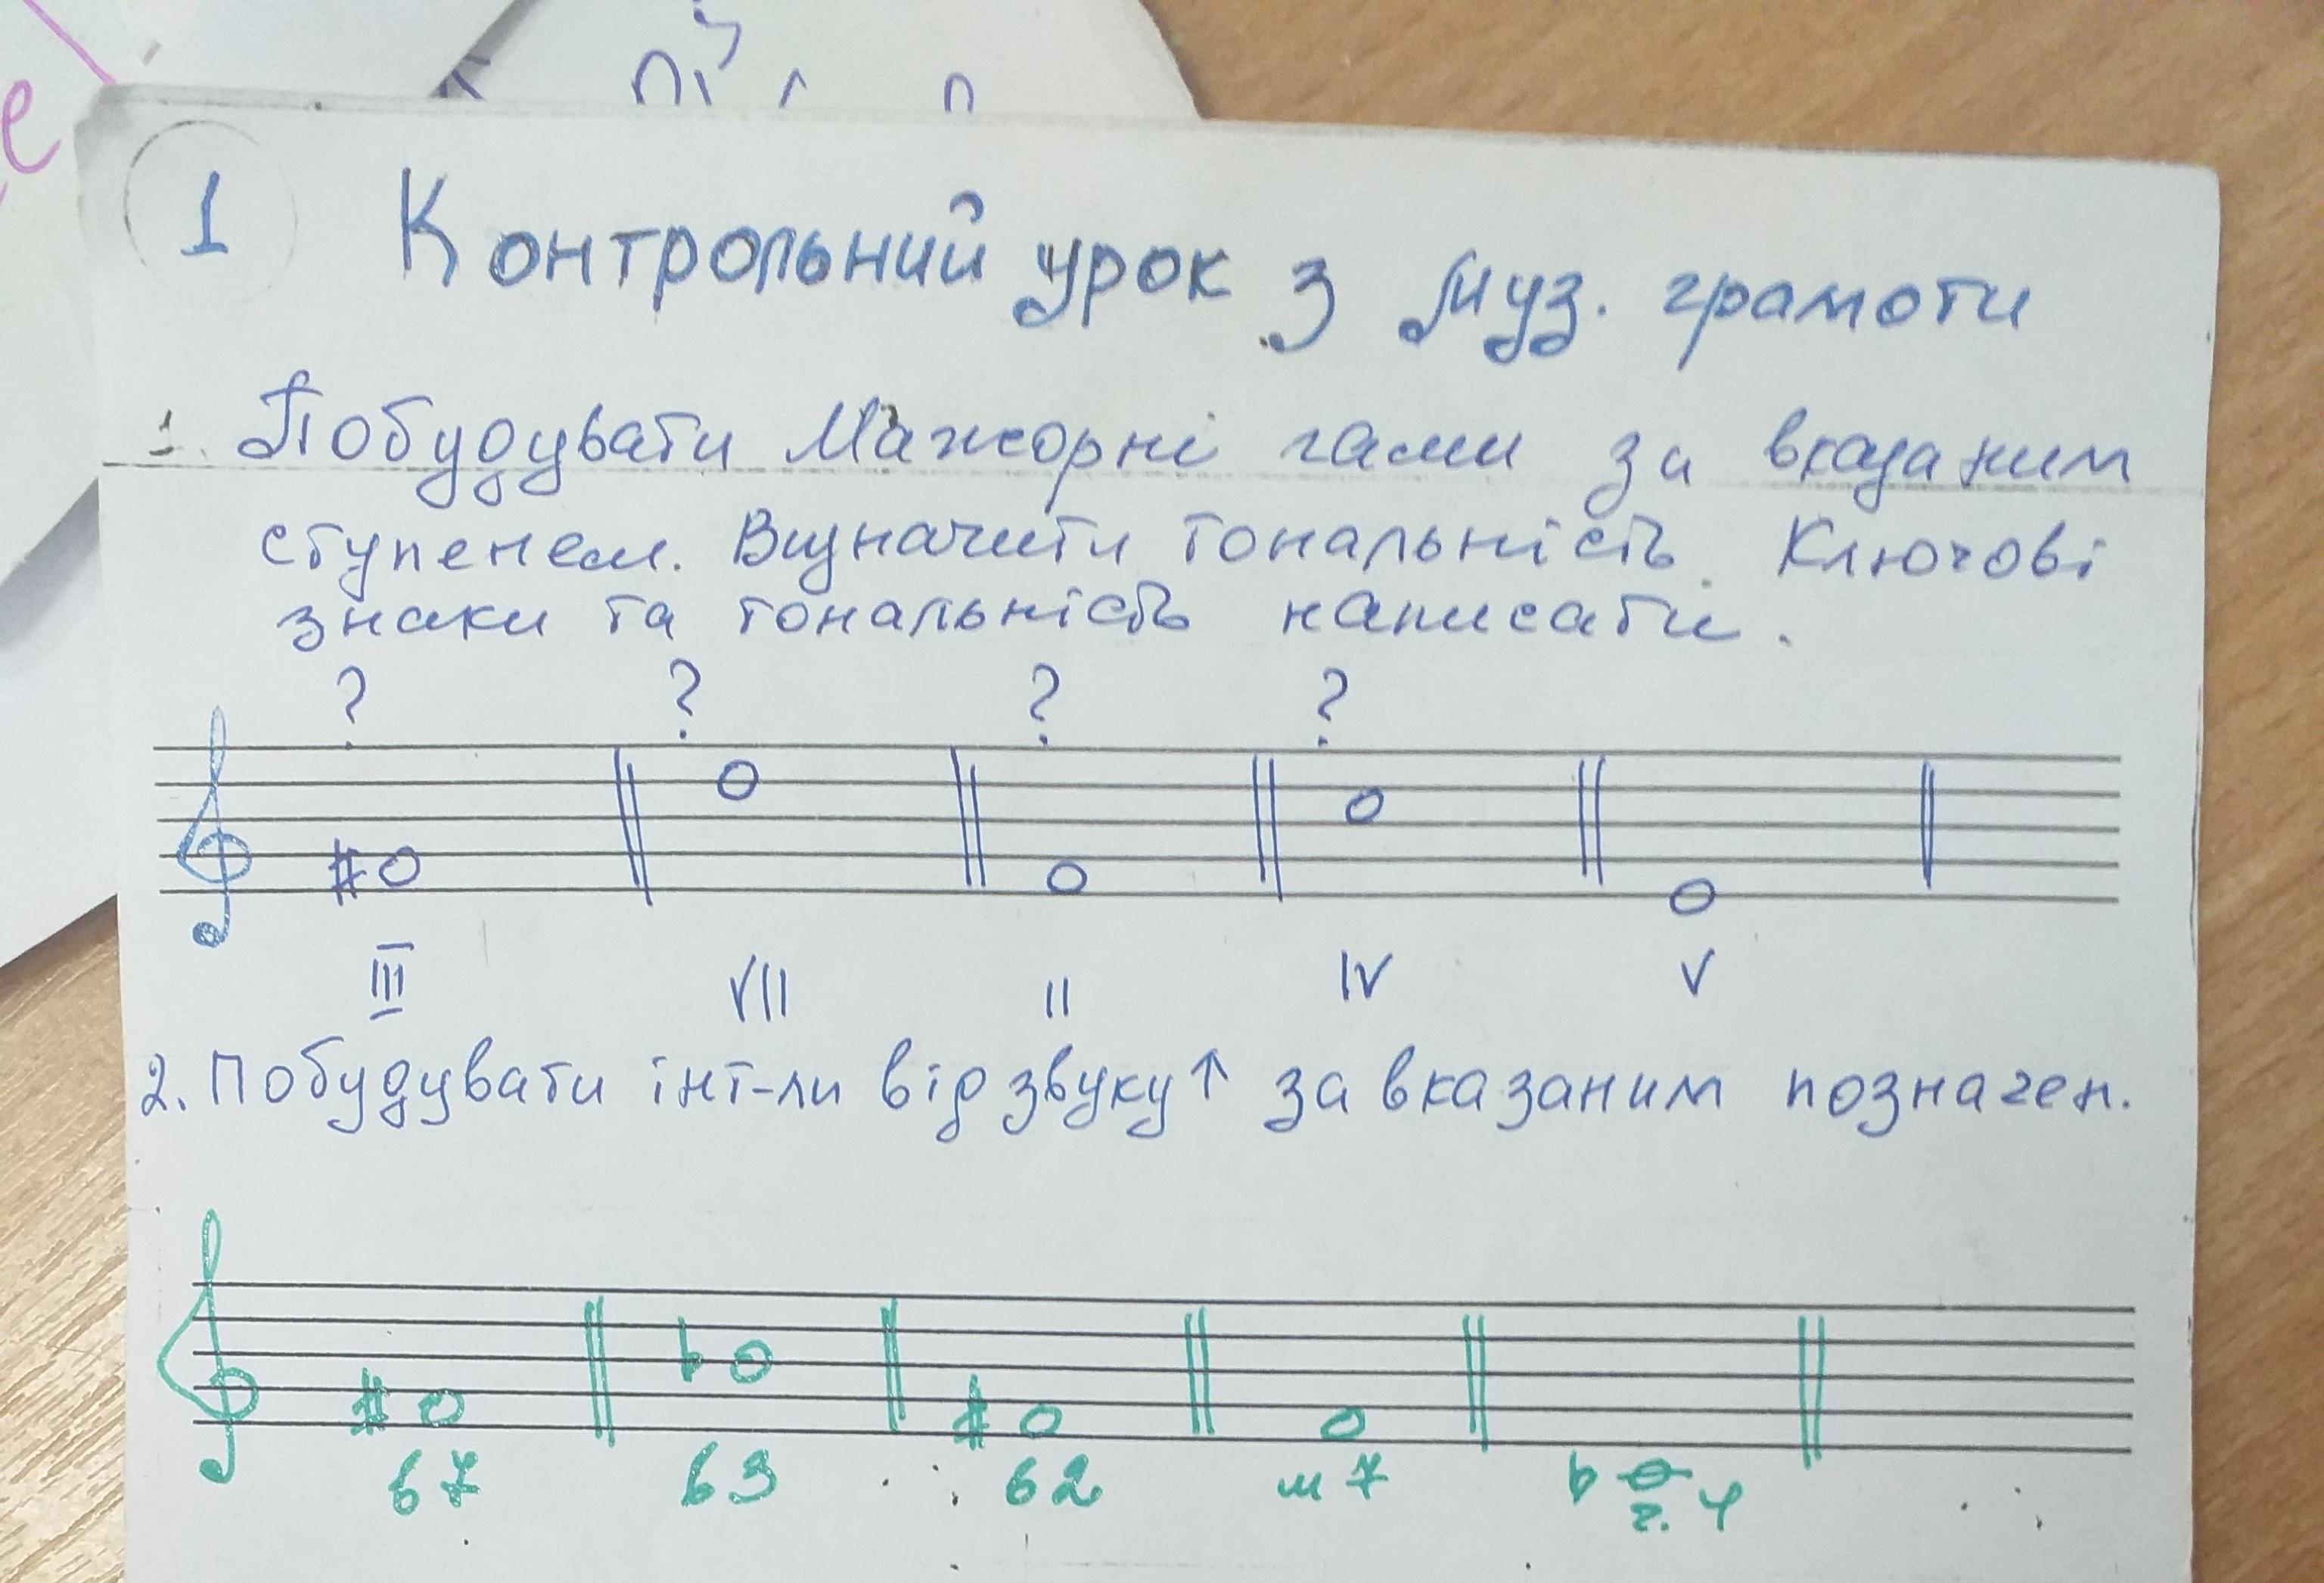 1 Контрольний урок з муз. грамоти
1. Побудувати Мажорні гами за вказаним
ступенем. Визначити тональність. Ключові
знаки та тональність написати.
? ? ? ?
III VII II IV V
2. Побудувати інт-ли від звуку↑ за вказаним позначен.
в7 в3 в2 м7 ч.4